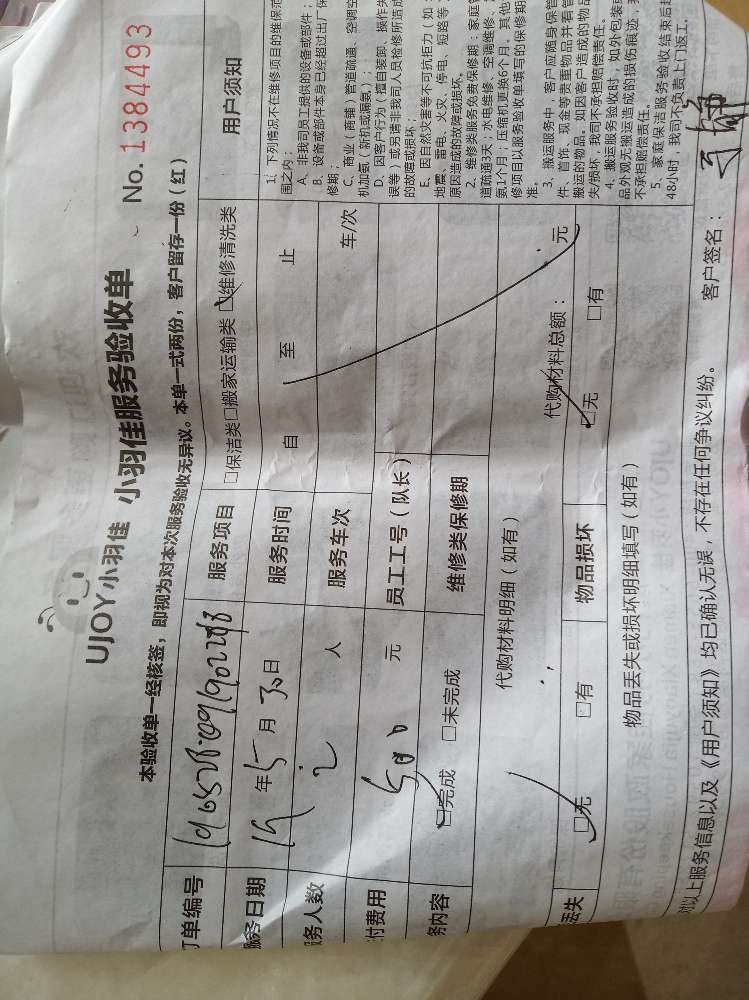 UJOY小羽佳 小羽佳服务验收单
No. 1384493
本验收单一经核签，即视为对本次服务验收无异议。本单一式两份，客户留存一份（红）
订单编号
服务项目 □保洁类□搬家运输类□维修清洗类
服务日期 19年5月30日
服务时间 自 至 止
服务人数 2 人
服务车次 车/次
付费用 500 元
员工工号（队长）
务内容 □完成 □未完成
维修类保修期
代购材料明细（如有）
代购材料总额： 元
丢失 □无 □有
物品损坏 □无 □有
物品丢失或损坏明细填写（如有）
对以上服务信息以及《用户须知》均已确认无误，不存在任何争议纠纷。 客户签名：
用户须知
1、下列情况不在维修项目的维保范
围之内：
A、非我司员工提供的设备或部件；
B、设备或部件本身已经超过出厂保
修期；
C、商业（商铺）管道疏通、空调空
机加氨（新机或漏氨）；
D、因客户行为（擅自装卸、操作失
误等）或另请非我司人员检修所造成
的故障或损坏；
E、因自然灾害等不可抗拒力（如：
地震、雷电、火灾、停电、短路等）
原因造成的故障或损坏。
2、维修类服务免费保修期：家庭管
道疏通3天；水电维修、空调维修、
氨1个月；压缩机更换6个月。其他
修项目以服务验收单填写的保修期
准。
3、搬运服务中，客户应随身保管
件、首饰、现金等贵重物品并看管
搬运的物品。如因客户造成的物品
失/损坏，我司不承担赔偿责任。
4、搬运服务验收时，如外包装或
品外观无搬运造成的损伤痕迹，我
不承担赔偿责任。
5、家庭保洁服务验收结束后超
48小时，我司不负责上门返工。